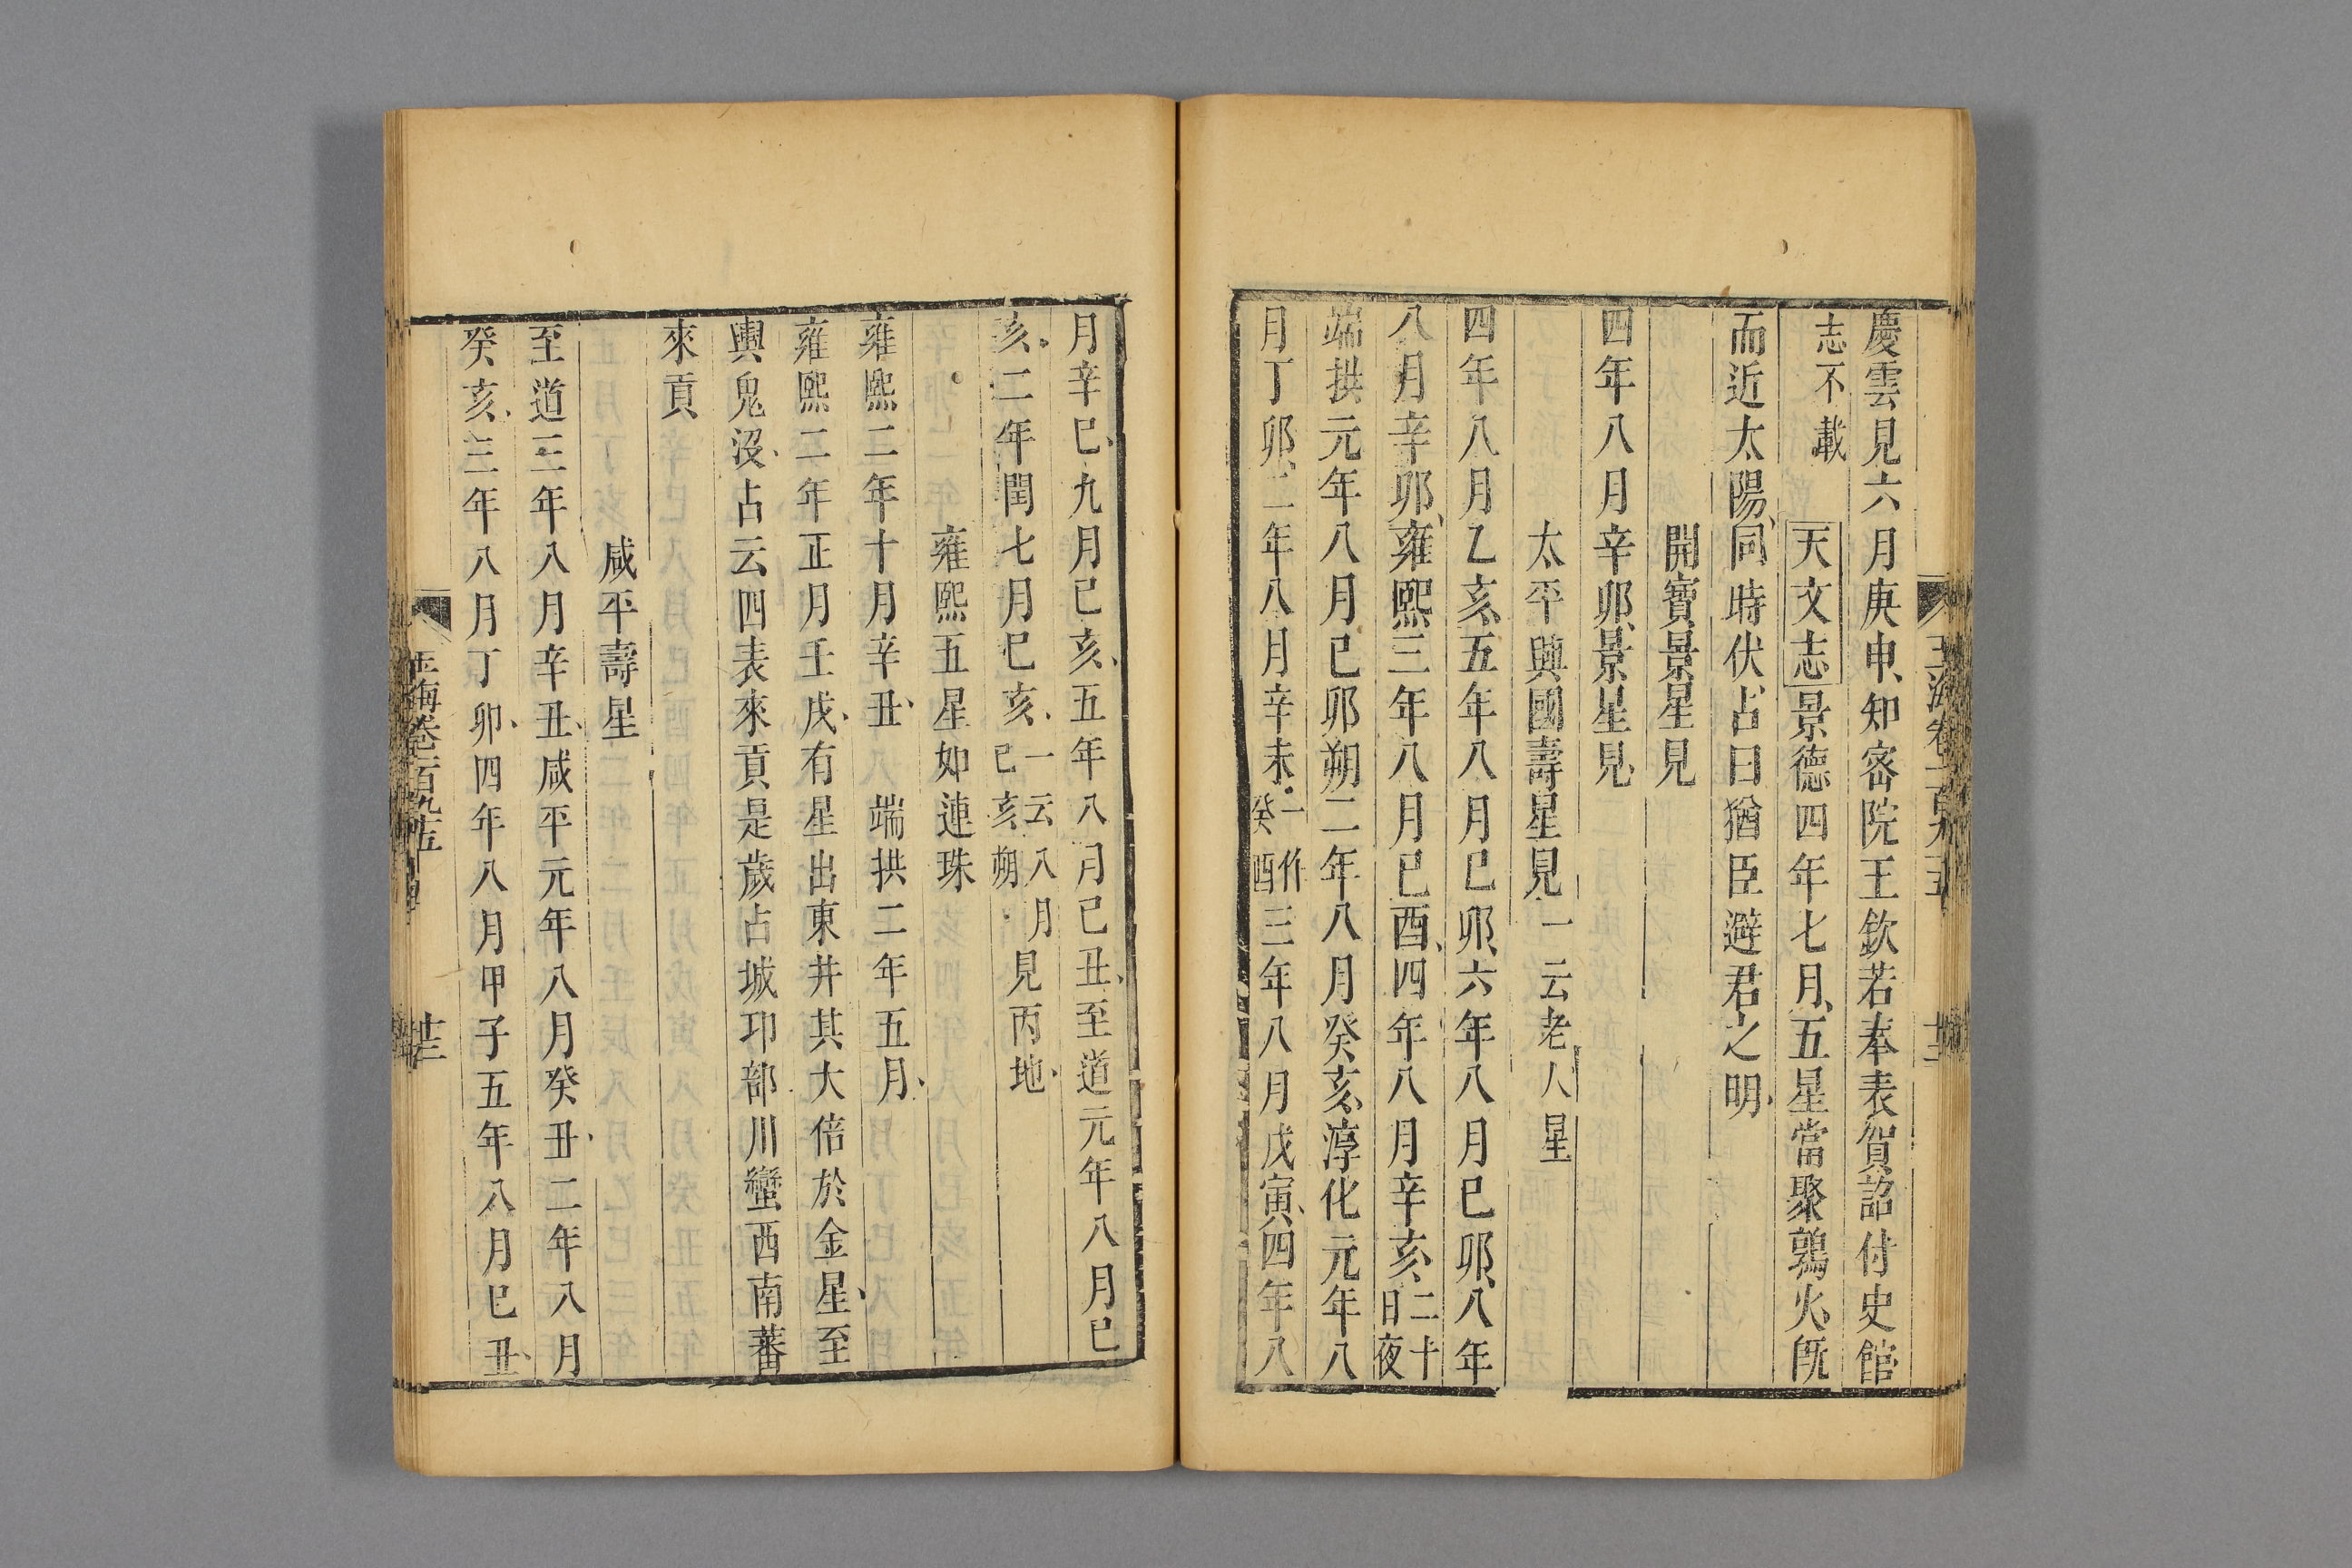 慶雲見六月庚申知密院王欽若奉表賀詔付史館
志不載 天文志景德四年七月五星當聚鶉火旣
而近太陽同時伏占曰猶臣避君之明
開寶景星見
四年八月辛卯景星見
太平興國壽星見一云老人星
四年八月乙亥五年八月己卯六年八月巳卯八年
八月辛卯雍熙三年八月巳酉四年八月辛亥二十日夜
端拱元年八月已卯朔二年八月癸亥淳化元年八
月丁卯二年八月辛未一作癸酉三年八月戊寅四年八
月辛巳九月已亥五年八月己丑至道元年八月巳
亥二年閏七月巳亥一云八月己亥朔見丙地
雍熙五星如連珠
雍熙二年十月辛丑 端拱二年五月
雍熙二年正月壬戌有星出東井其大倍於金星至
輿鬼沒占云四表來貢是歲占城邛部川蠻西南蕃
來貢
咸平壽星
至道三年八月辛丑咸平元年八月癸丑二年八月
癸亥三年八月丁卯四年八月甲子五年八月巳丑
玉海卷一百九十五